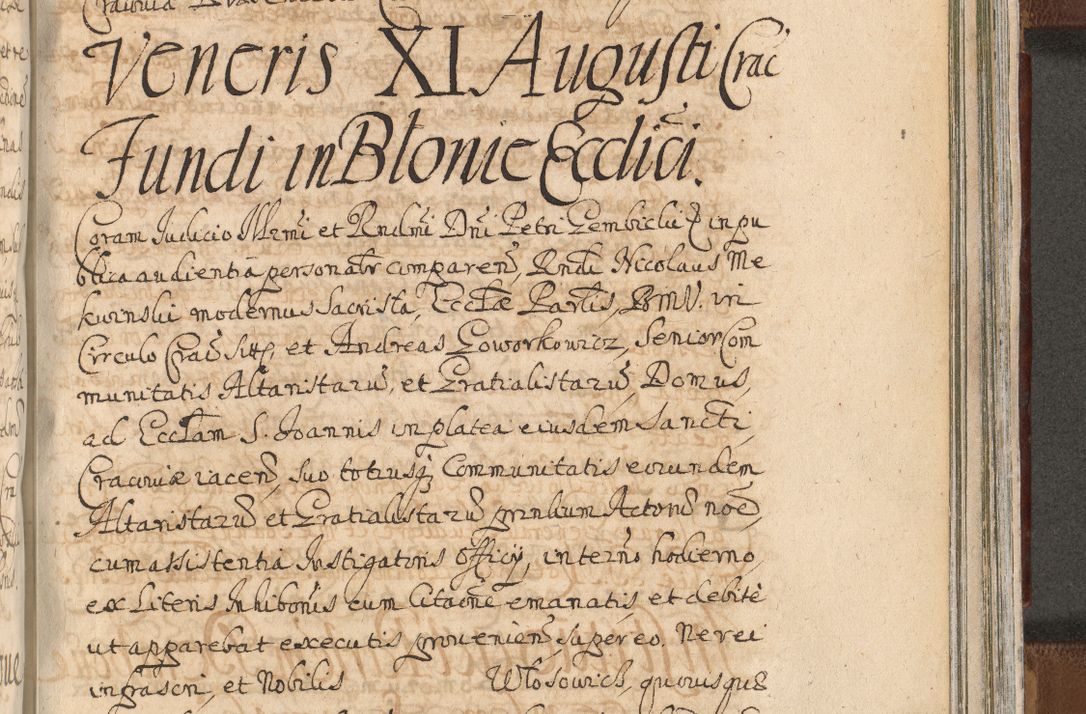 Veneris XI Augusti Crac
Fundi in Błonie Ecclici.
Coram Iudicio Illrmi et Rndmi Dni Petri Gembicki &c in pu
blica audientia personalr comparens, Rndi Nicolaus Me
kwinski modernus Sacrista, Ecclae Partis, BMV. in
Circulo Crac Sitt, et Andreas Goworkowicz, Senior Com
munitatis Altaristaru, et Gratialistaru, Domus,
ad Ecclam S. Joannis in platea eiusdem Sancti,
Cracoviæ iacen, suo totiusq Communitatis eorundem
Altaristaru et Gratialistaru prnlium Actoru noe,
cum assistentia Instigatoris Officij, in terno hodierno,
ex Literis Inhibonis cum Citaone emanatis et debite
ut apparebat executis provenien, super eo. Ne rei
infrascri, et Nobilis Włosowich, quorusque